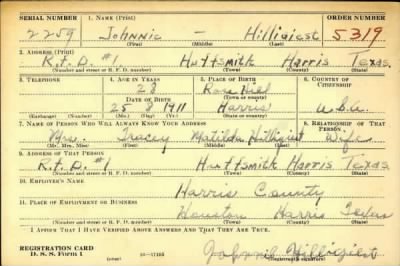 SERIAL NUMBER 1. NAME (Print) ORDER NUMBER
2259 Johnnie – Hilligiest 5319
(First) (Middle) (Last)
2. ADDRESS (Print)
R.F.D. #1 Huffsmith Harris Texas
(Number and street or R. F. D. number) (Town) (County) (State)
3. TELEPHONE 4. AGE IN YEARS 5. PLACE OF BIRTH 6. COUNTRY OF CITIZENSHIP
28 Rose Hill
DATE OF BIRTH (Town or county)
25 8 1911 Harris U.S.A.
(Exchange) (Number) (Mo.) (Day) (Yr.) (State or country)
7. NAME OF PERSON WHO WILL ALWAYS KNOW YOUR ADDRESS 8. RELATIONSHIP OF THAT PERSON
Mrs. Tracey Matilda Hilligiest Wife
(Mr., Mrs., Miss) (First) (Middle) (Last)
9. ADDRESS OF THAT PERSON
R.F.D. #1 Huffsmith Harris Texas
(Number and street or R. F. D. number) (Town) (County) (State)
10. EMPLOYER'S NAME
Harris County
11. PLACE OF EMPLOYMENT OR BUSINESS
Houston Harris Texas
(Number and street or R. F. D. number) (Town) (County) (State)
I AFFIRM THAT I HAVE VERIFIED ABOVE ANSWERS AND THAT THEY ARE TRUE.
REGISTRATION CARD
D. S. S. Form 1 16—17105 Johnnie Hilligiest
(Registrant's signature)